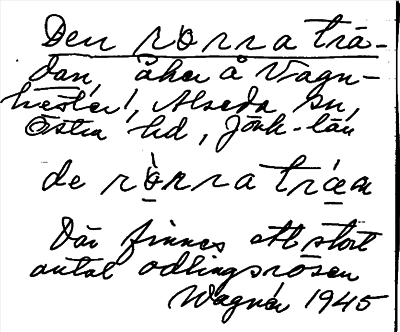 Den rorra trä-
dan, åker å Vagn-
hester, Alseda sn,
Östra hd, Jönk-län
de ròrra tráen
Där finnes ett stort
antal odlingsrösen
Wagnér 1945